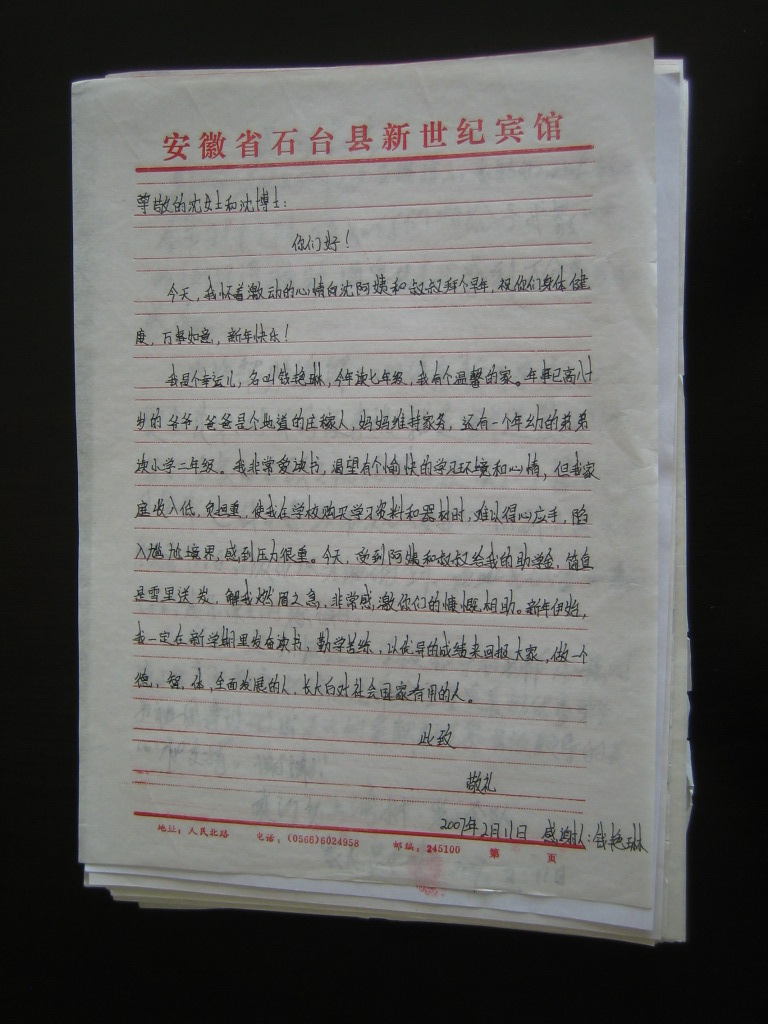 安徽省石台县新世纪宾馆
尊敬的沈女士和沈博士：
你们好！
今天，我怀着激动的心情向沈阿姨和叔叔拜个早年，祝你们身体健
康，万事如意，新年快乐！
我是个幸运儿，名叫钱艳琳，今年读七年级，我有个温馨的家。年事已高八十
岁的爷爷，爸爸是个地道的庄稼人，妈妈维持家务，还有一个年幼的弟弟
读小学二年级。我非常爱读书，渴望有个愉快的学习环境和心情，但我家
庭收入低，负担重，使我在学校购买学习资料和器材时，难以得心应手，陷
入尴尬境界，感到压力很重。今天，受到阿姨和叔叔给我的助学金，简直
是雪里送炭，解我燃眉之急，非常感激你们的慷慨相助。新年伊始，
我一定在新学期里发奋读书，勤学苦练，以优异的成绩来回报大家，做一个
德，智，体，全面发展的人，长大白对社会国家有用的人。
此致
敬礼
2007年2月11日 感谢人：钱艳琳
地址：人民北路 电话：(0566)6024958 邮编：245100 第 页